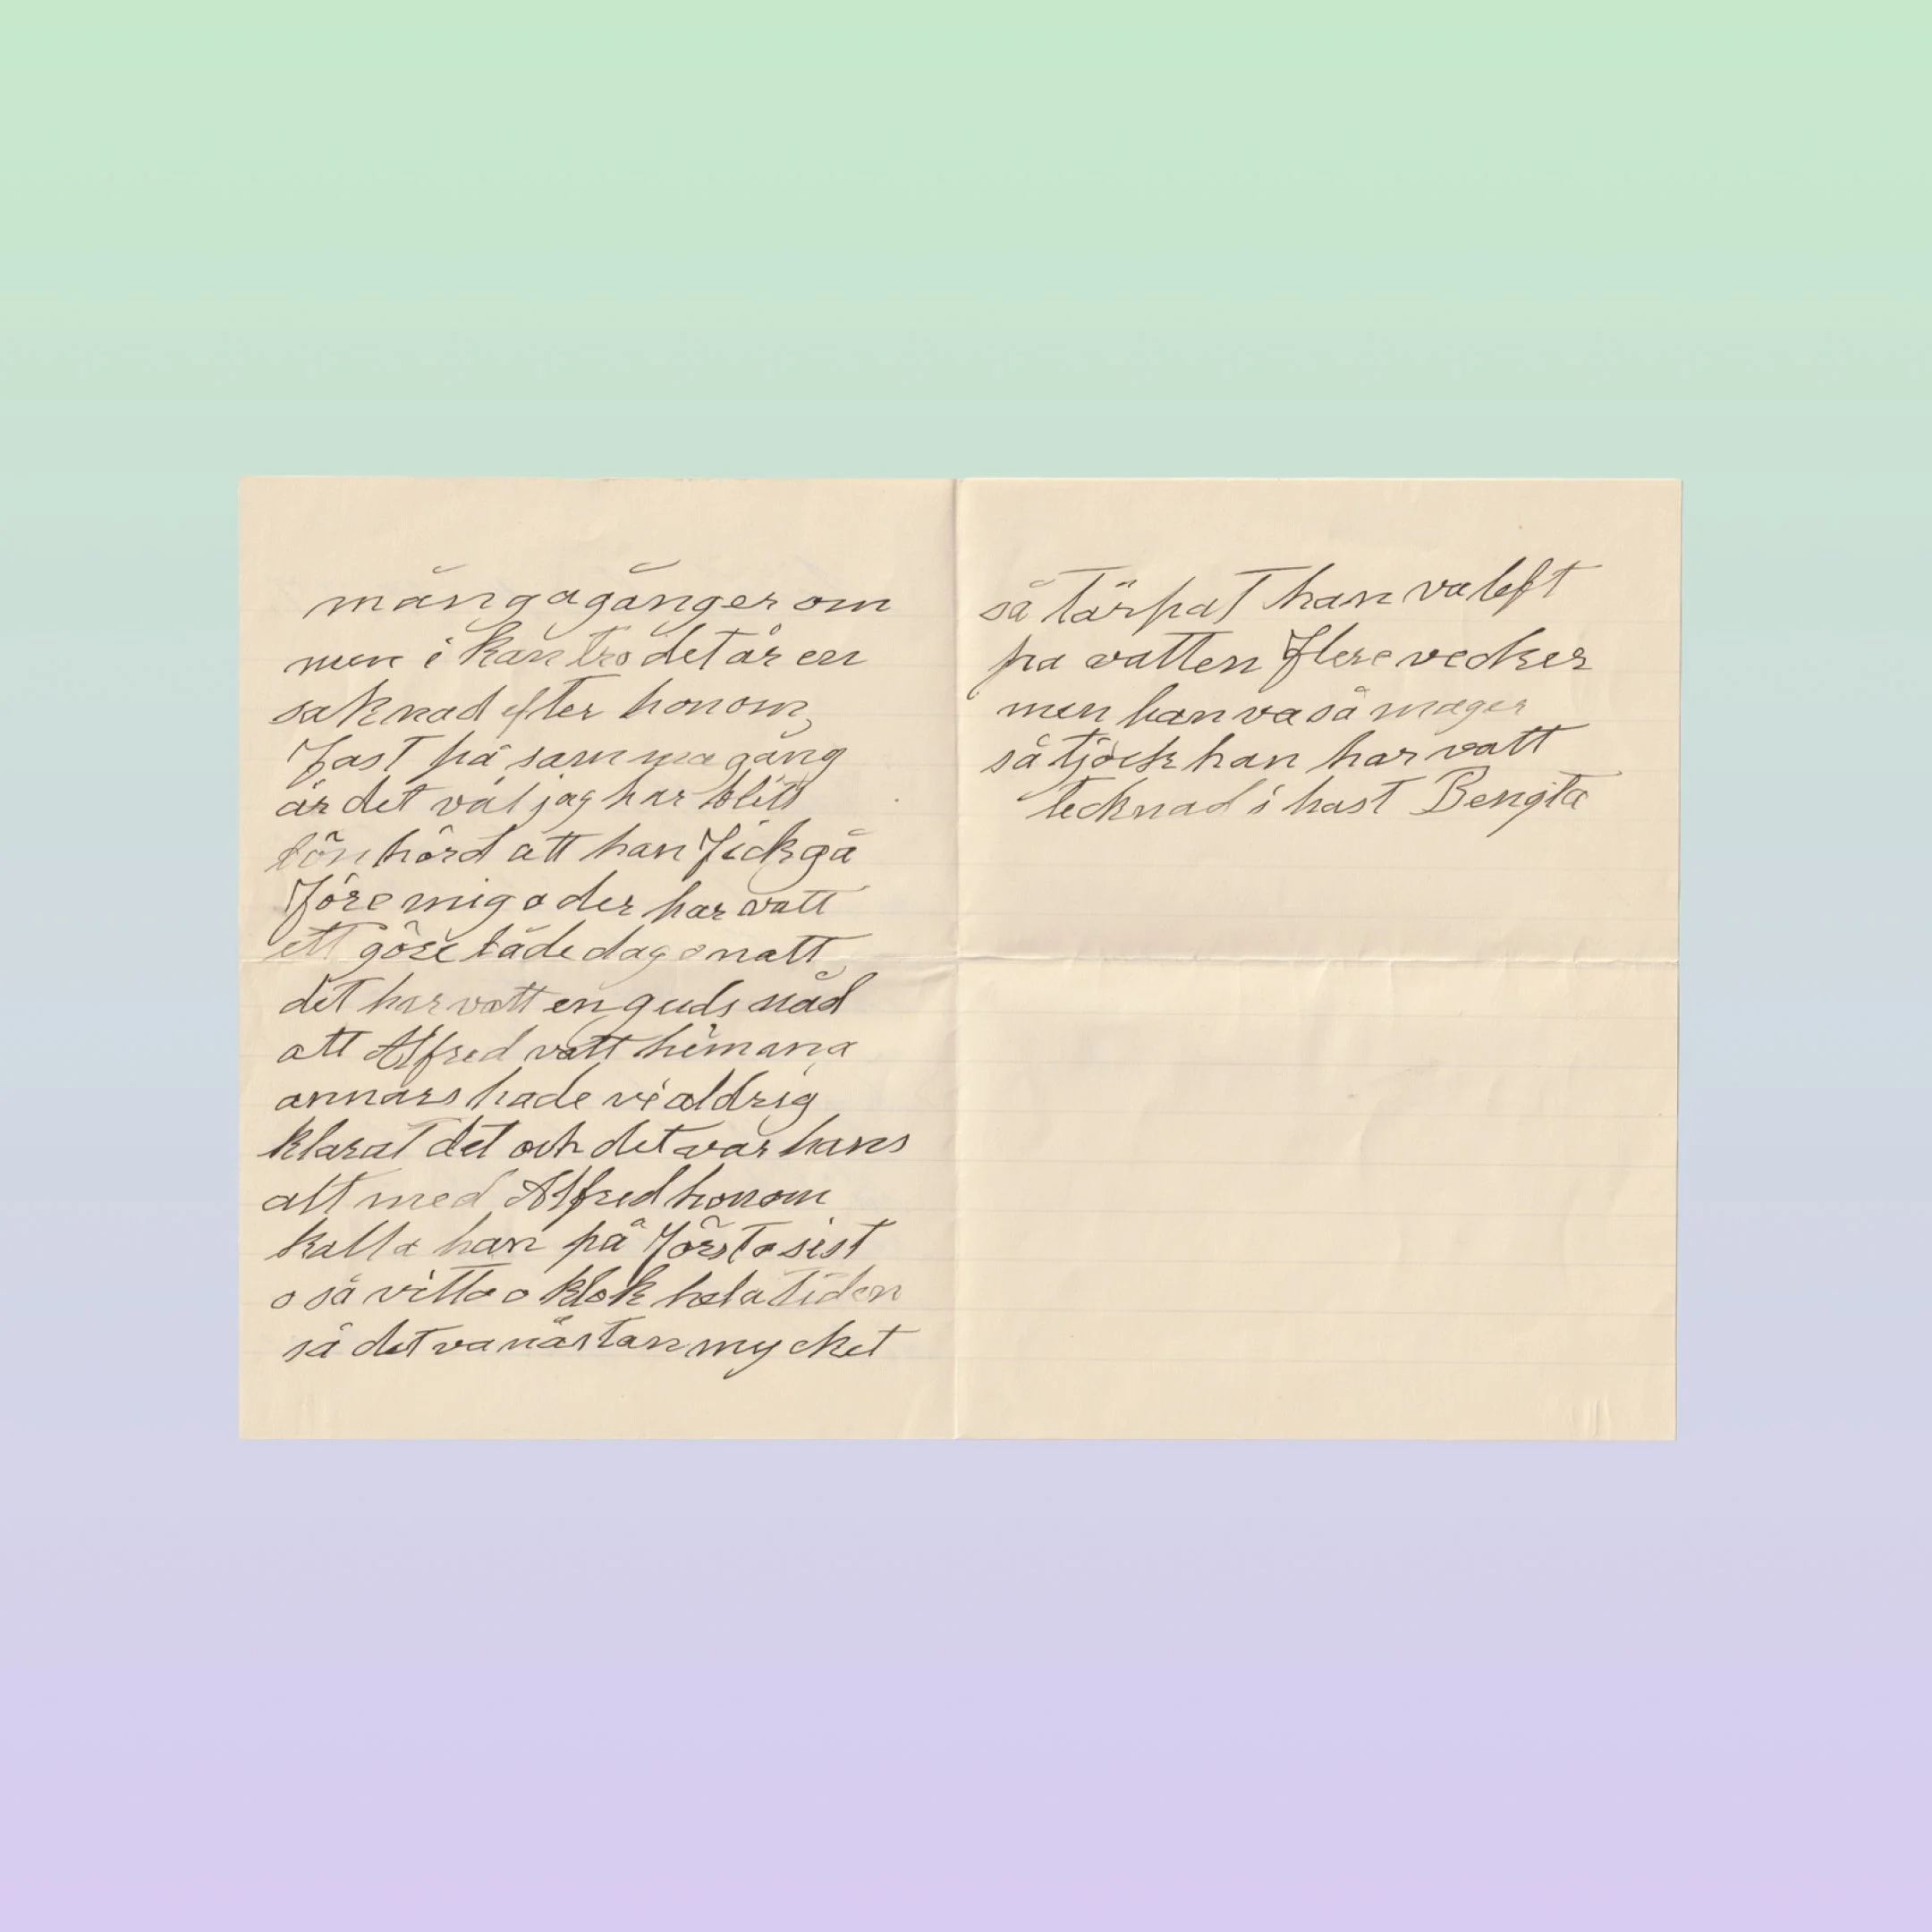 många gånger om
men i kan tro det är en
saknad efter honom,
Fast på samma gång
är det väl jag har blitt
bönhörd att han fick gå
före mig o der har vatt
ett göre både dag o natt
det har vatt en guds nåd
att Alfred vatt himana
annars hade vi aldrig
klarat det och det var hans
alt med Alfred honom
kalla han på först o sist
o så vitta o klok hela tiden
så det va nästan mycket
så tärpat han va left
pa vatten flere vecker
men han va så mager
så tjock han har vatt
tecknad i hast Bengta